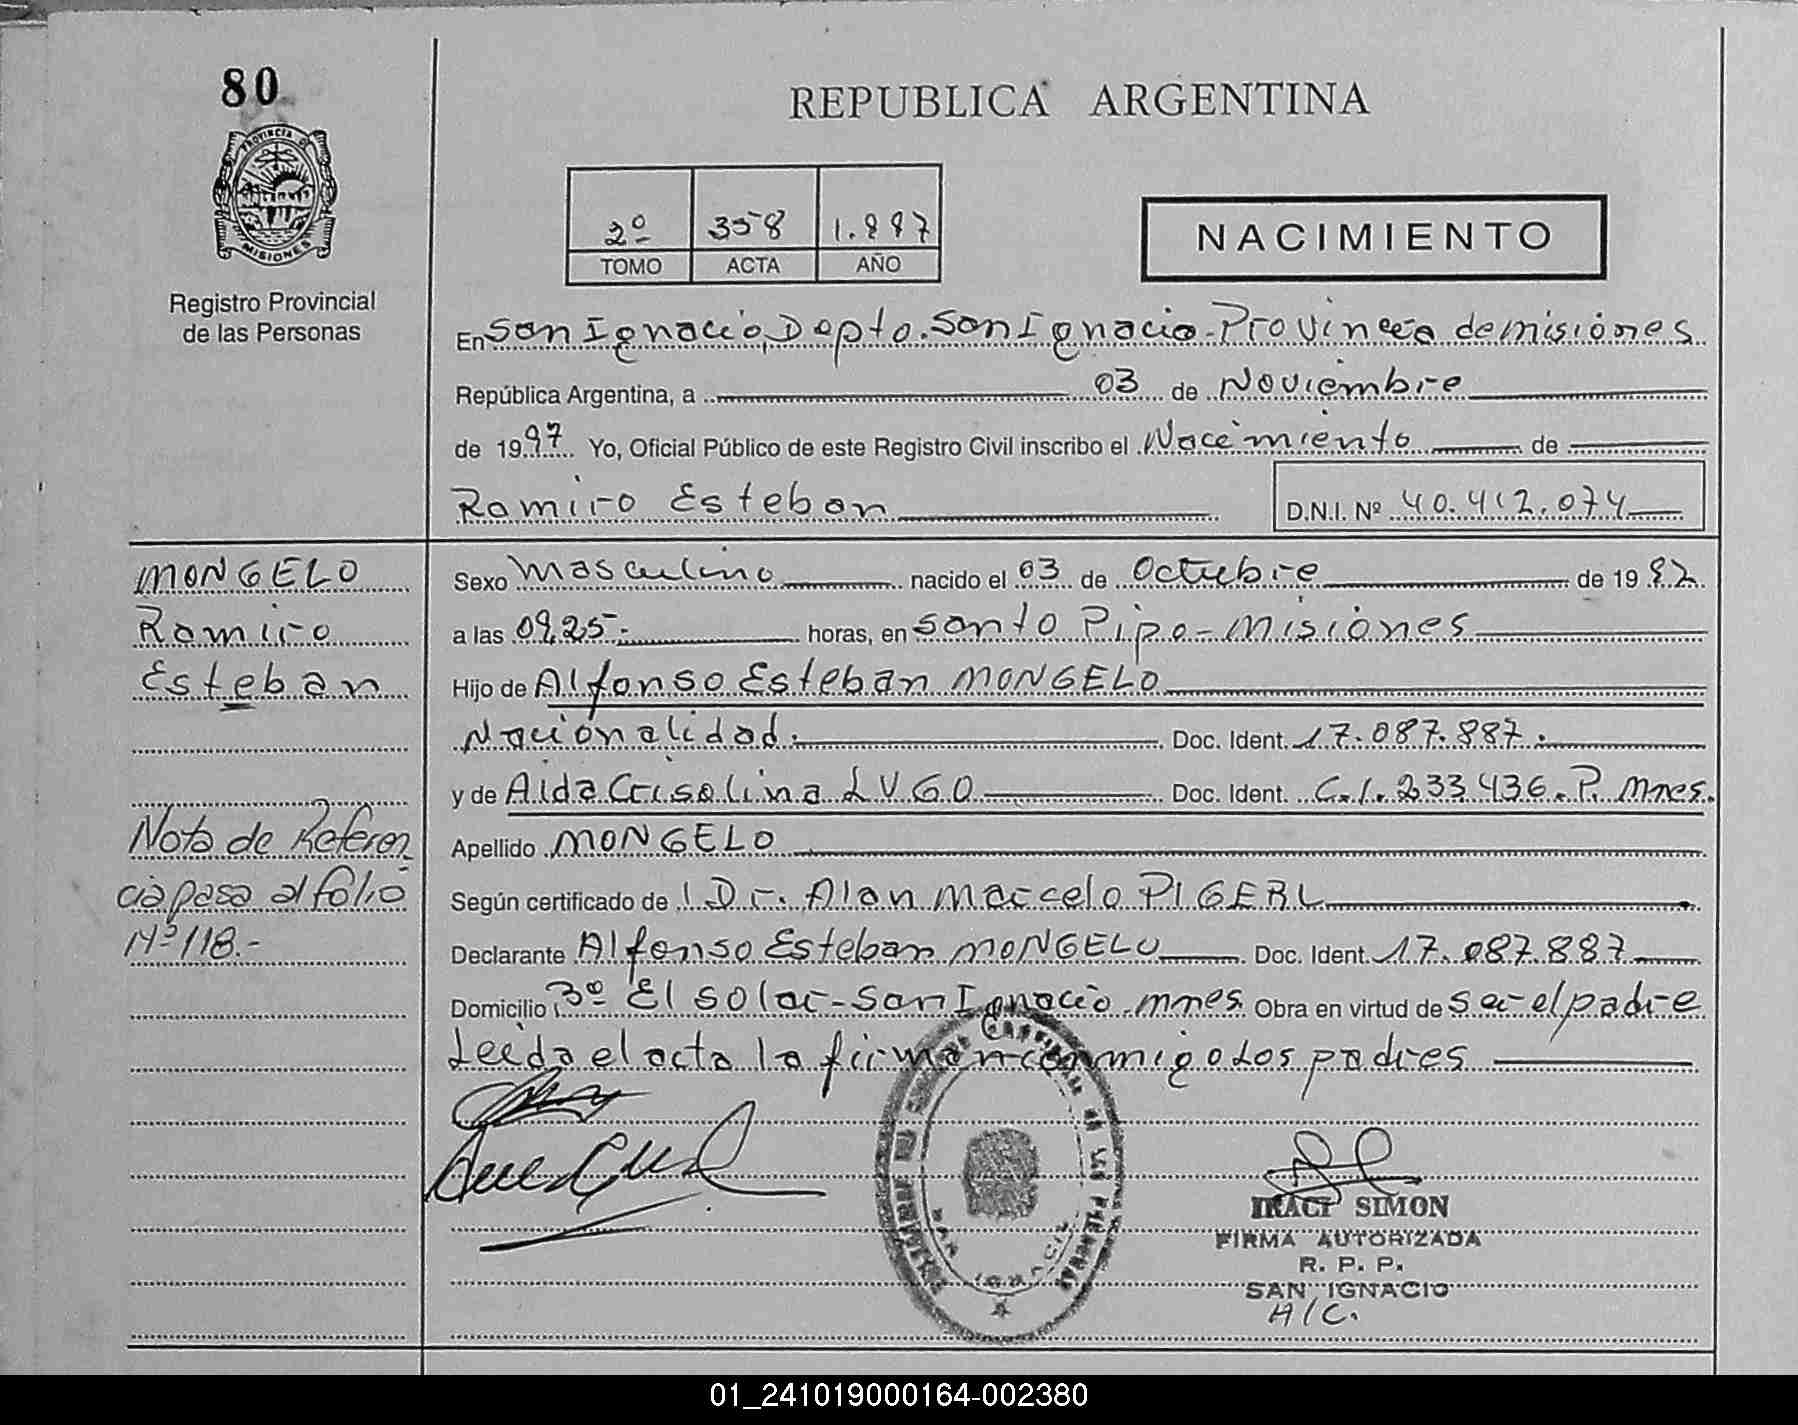 80
REPUBLICA ARGENTINA
PROVINCIA DE
MISIONES
Registro Provincial
de las Personas
2º 358 1.997
TOMO ACTA AÑO
NACIMIENTO
En San Ignacio, Dpto. San Ignacio - Provincia de misiones
República Argentina, a 03 de Noviembre
de 1997 Yo, Oficial Público de este Registro Civil inscribo el Nacimiento de
Ramiro Esteban D.N.I. Nº 40.412.074
MONGELO
Ramiro
Esteban
Nota de Referen
cia pasa al folio
Nº 118.-
Sexo Masculino nacido el 03 de Octubre de 19 97
a las 09,25 horas, en Santo Pipo - Misiones
Hijo de Alfonso Esteban MONGELO
Nacionalidad. Doc. Ident. 17.087.887.
y de Aida Crisolina LUGO Doc. Ident. C.I. 233.436. P. Mnes.
Apellido MONGELO
Según certificado de l Dr. Alan Marcelo PIGERL
Declarante Alfonso Esteban MONGELO Doc. Ident. 17.087.887
Domicilio Bº El solar - San Ignacio, mnes. Obra en virtud de Ser el padre
Leida el acta la firman conmigo Los padres
IRACI SIMON
FIRMA AUTORIZADA
R. P. P.
SAN IGNACIO
A/C.
01_241019000164-002380